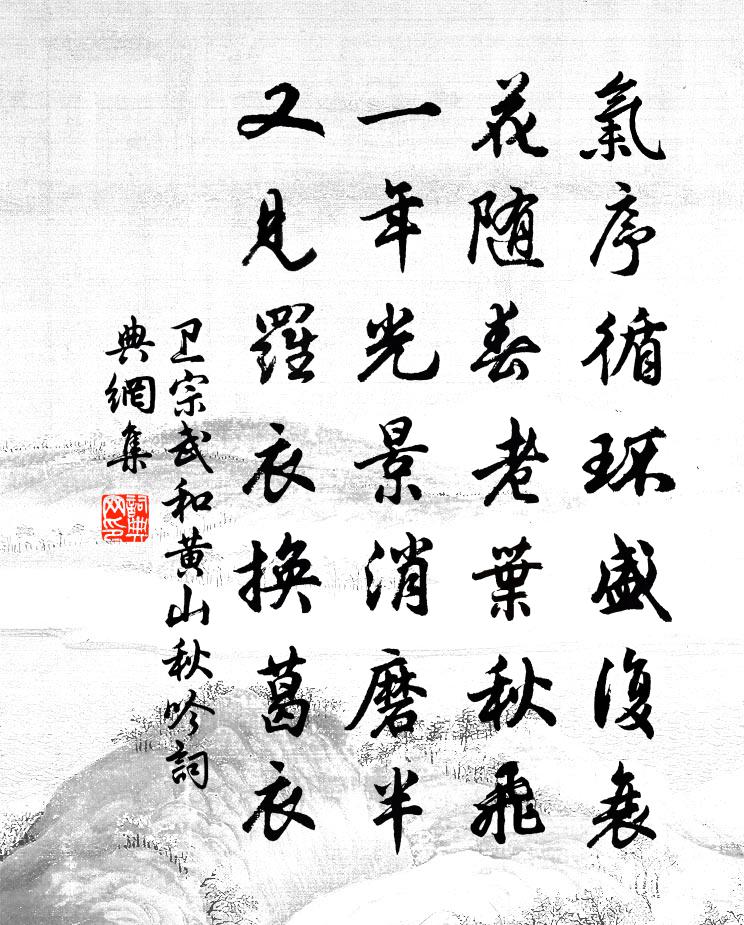 氣序循环盛復衰
花随春老葉秋飛
一年光景消磨半
又見羅衣换葛衣
卫宗武和黄山秋吟詞
典網集
詞典網印